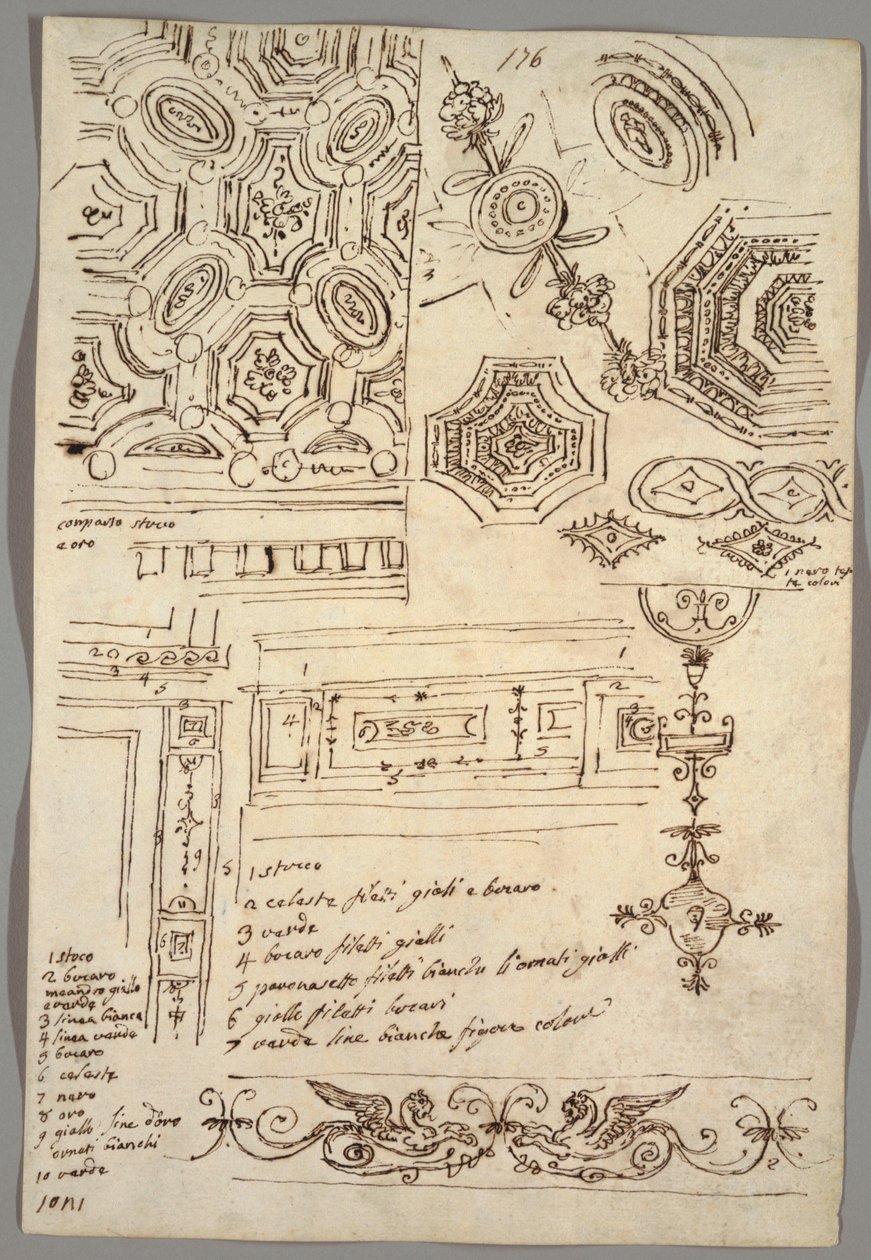 176
c
c
c
comparto stuco
e oro
1 nero tu
te colori
2
3
4
5
1
1
2
4
2
3
4
5
5
3
6
3
3
9
5
6
7
8
1 stuco
2 celeste filetti giali e bocaro
3 verde
4 bocaro filetti gialli
5 pavonasetto filetti bianchi li ornati gialli
6 giallo filetti bocari
7 verde line bianche figure colori
1 stoco
2 bocaro
meandro giallo
e verde
3 linea bianca
4 linea verde
5 bocaro
6 celeste
7 nero
8 oro
9 giallo line d'oro
ornati bianchi
10 verde
2